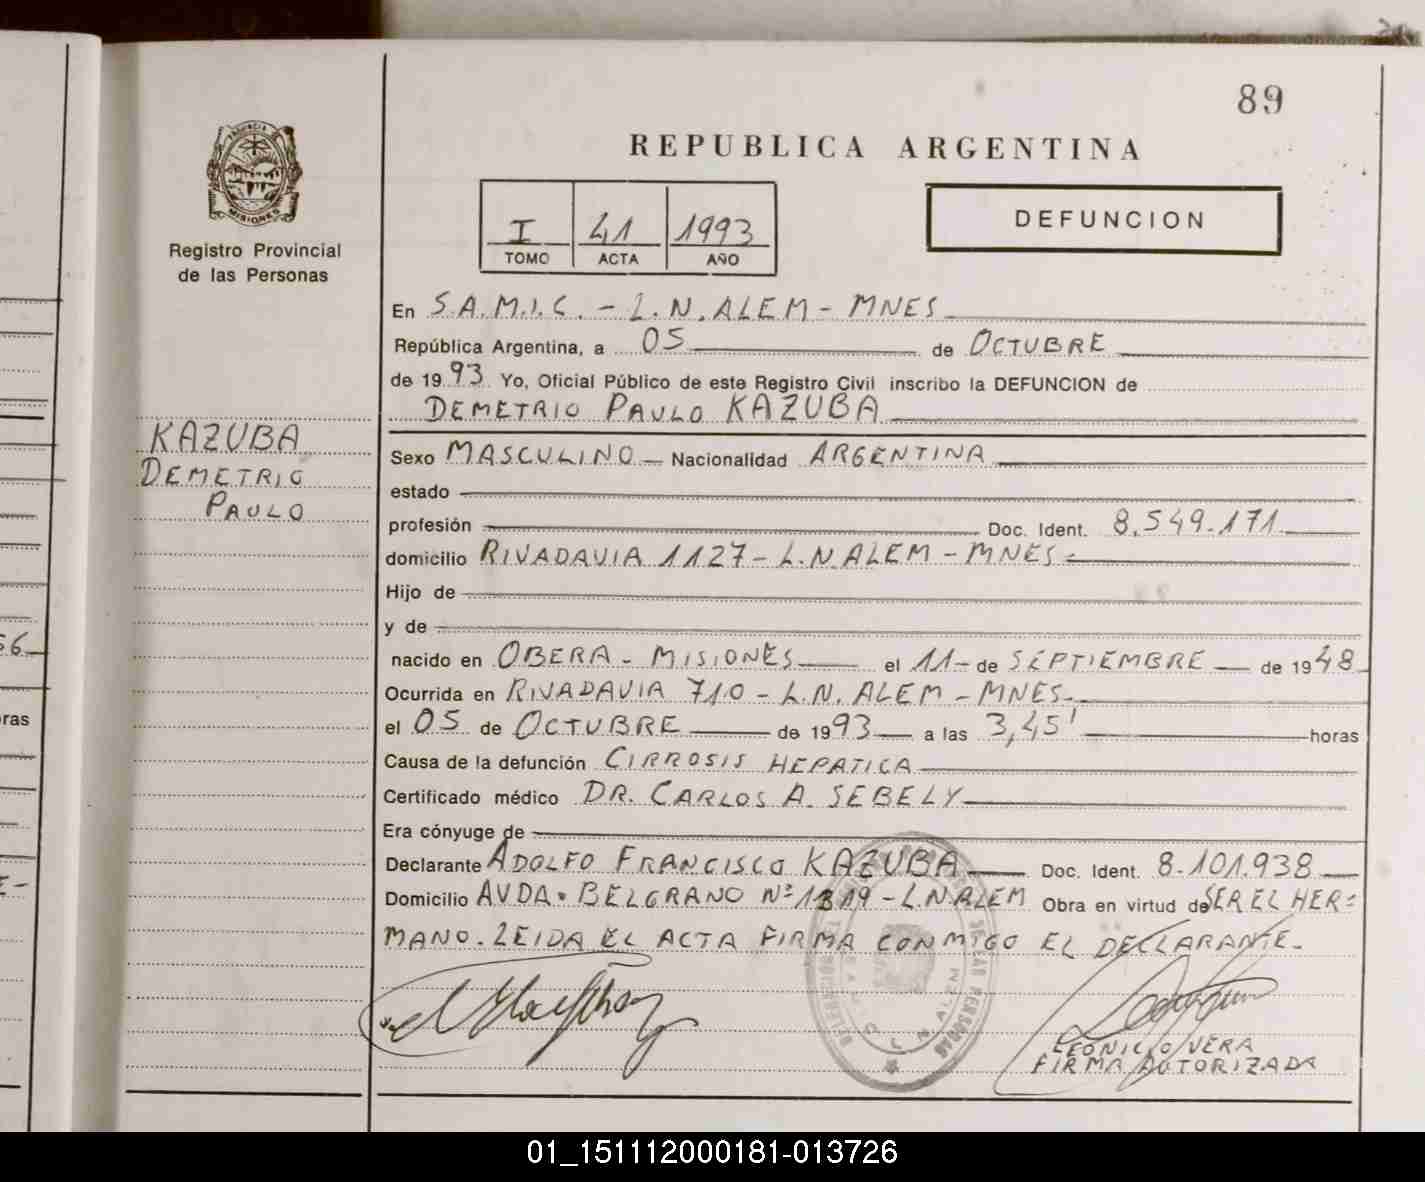 89
REPUBLICA ARGENTINA
PROVINCIA DE
MISIONES
Registro Provincial
de las Personas
I 41 1993
TOMO ACTA AÑO
DEFUNCION
En S.A.M.I.C. - L.N. ALEM - MNES
República Argentina, a 05 de OCTUBRE
de 1993 Yo, Oficial Público de este Registro Civil inscribo la DEFUNCION de
DEMETRIO PAULO KAZUBA
KAZUBA
DEMETRIO
PAULO
Sexo MASCULINO Nacionalidad ARGENTINA
estado
profesión Doc. Ident. 8.549.171
domicilio RIVADAVIA 1127 - L.N. ALEM - MNES
Hijo de
y de
nacido en OBERA - MISIONES el 11 de SEPTIEMBRE de 1948
Ocurrida en RIVADAVIA 710 - L.N. ALEM - MNES.
el 05 de OCTUBRE de 1993 a las 3,45' horas
Causa de la defunción CIRROSIS HEPATICA
Certificado médico DR. CARLOS A. SEBELY
Era cónyuge de
Declarante ADOLFO FRANCISCO KAZUBA Doc. Ident. 8.101.938
Domicilio AVDA. BELGRANO Nº 1319 - L.N. ALEM Obra en virtud de SER EL HER=
MANO. LEIDA EL ACTA FIRMA CONMIGO EL DECLARANTE.
LEONICIO VERA
FIRMA AUTORIZADA
56
ras
E-
01_151112000181-013726